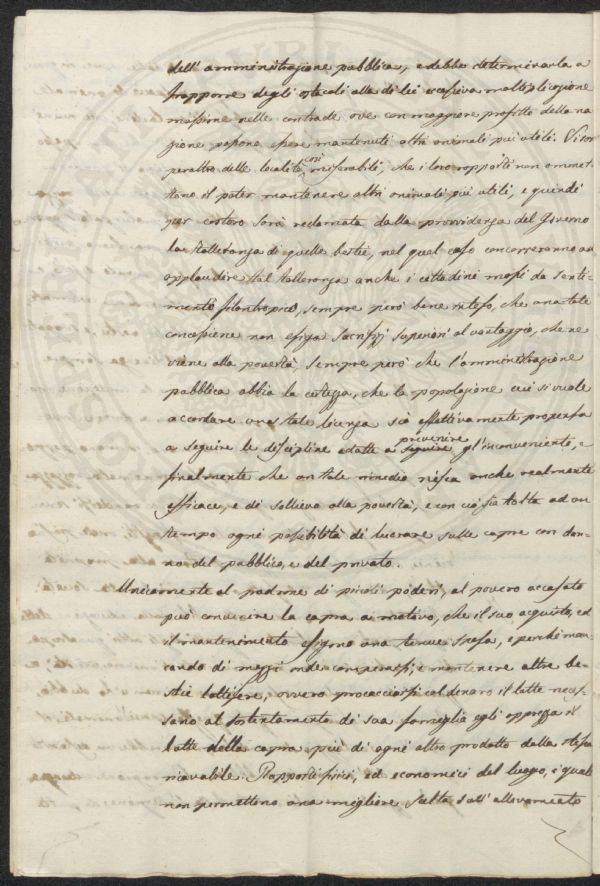 dell'amministrazione pubblica, e debbe determinarla a
frapporre degli ostacoli alla di lei eccessiva moltiplicazione
massime nelle contrade ove con maggiore profitto della na-
zione possono essere mantenuti altri animali più utili. Vi son
peraltro delle località così miserabili, che i loro rapporti non ammet-
tono il poter mantenere altri animali più utili, e quindi
per costoro sarà reclamata dalla provvidenza del Governo
la tolleranza di quelle bestie, nel qual caso concorreranno ad
applaudire tal tolleranza anche i cittadini mossi da senti-
mento filantropico, sempre però bene inteso, che una tale
concessione non esiga sacrifizj superiori al vantaggio, che ne
viene alla povertà, sempre però che l'amministrazione
pubblica abbia la certezza, che la popolazione cui si vuole
accordare una tale licenza sia effettivamente propensa
a seguire le discipline adatte a prevenire gl'inconvenienti, e
finalmente che un tale rimedio riesca anche realmente
efficace, e di sollievo alla povertà, e con ciò sia tolta ad un
tempo ogni possibilità di lucrare sulle capre con dan-
no del pubblico, e del privato.
Unicamente al padrone di piccoli poderi, al povero accasato
può convenire la capra a motivo, che il suo acquisto, ed
il mantenimento esigono una tenue spesa, e perchè man-
cando di mezzi onde comperarsi, e mantenere altre be-
stie lattifere, ovvero procacciarsi col denaro il latte neces-
sario al sostentamento di sua famiglia egli apprezza il
latte della capra più di ogni altro prodotto dalla stessa
ricavabile. Rapporti fisici, ed economici del luogo, i quali
non permettono una migliore scelta sull'allevamento